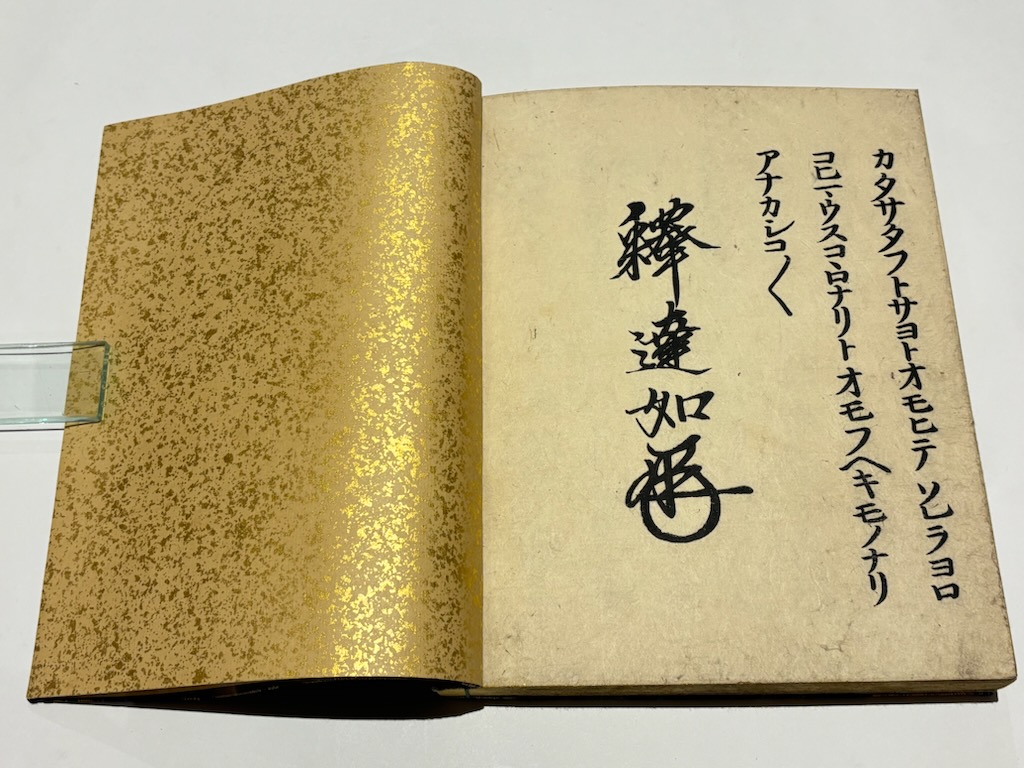 カタサタフトサヨトオモヒテソレヲヨロ
コヒマウスコヽロナリトオモフヘキモノナリ
アナカシコ〱
釋達如